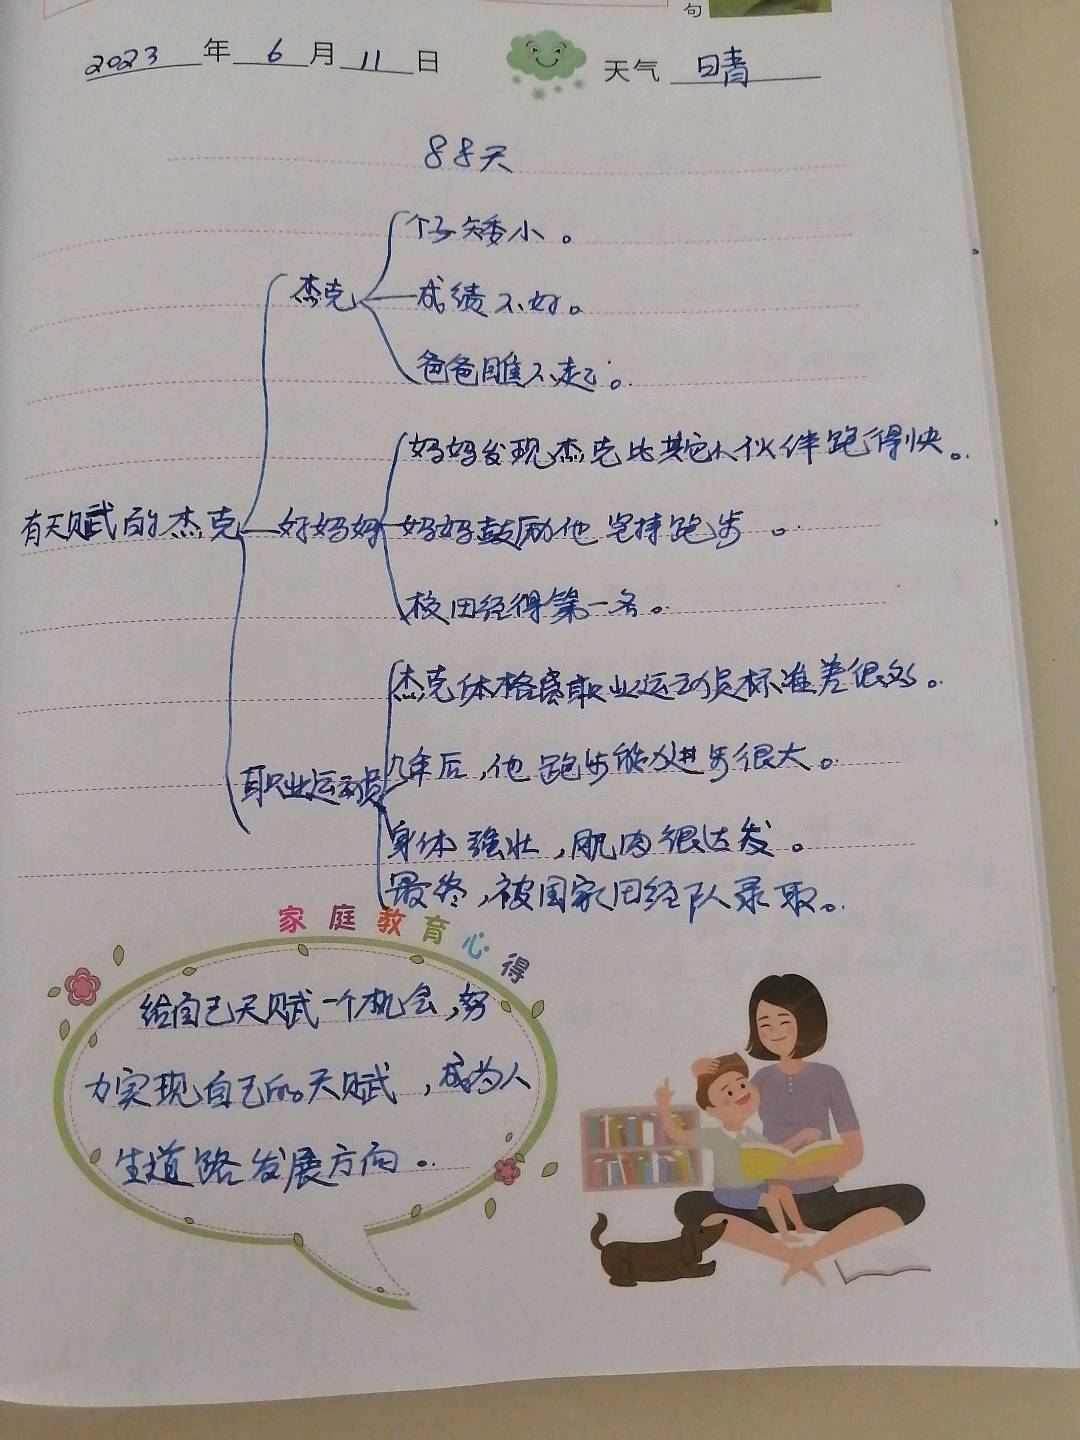 句
2023年6月11日 天气 晴
88天
个子矮小。
杰克
成绩不好。
爸爸瞧不起。
妈妈发现杰克比其它小伙伴跑得快。
有天赋的杰克 好妈妈 妈妈鼓励他坚持跑步。
校田径得第一名。
杰克体格离职业运动员标准差很多。
职业运动员 几年后,他跑步能力进步很大。
身体强壮,肌肉很达发。
最终,被国家田径队录取。
家庭教育心得
给自己天赋一个机会,努
力实现自己的天赋,成为人
生道路发展方向。